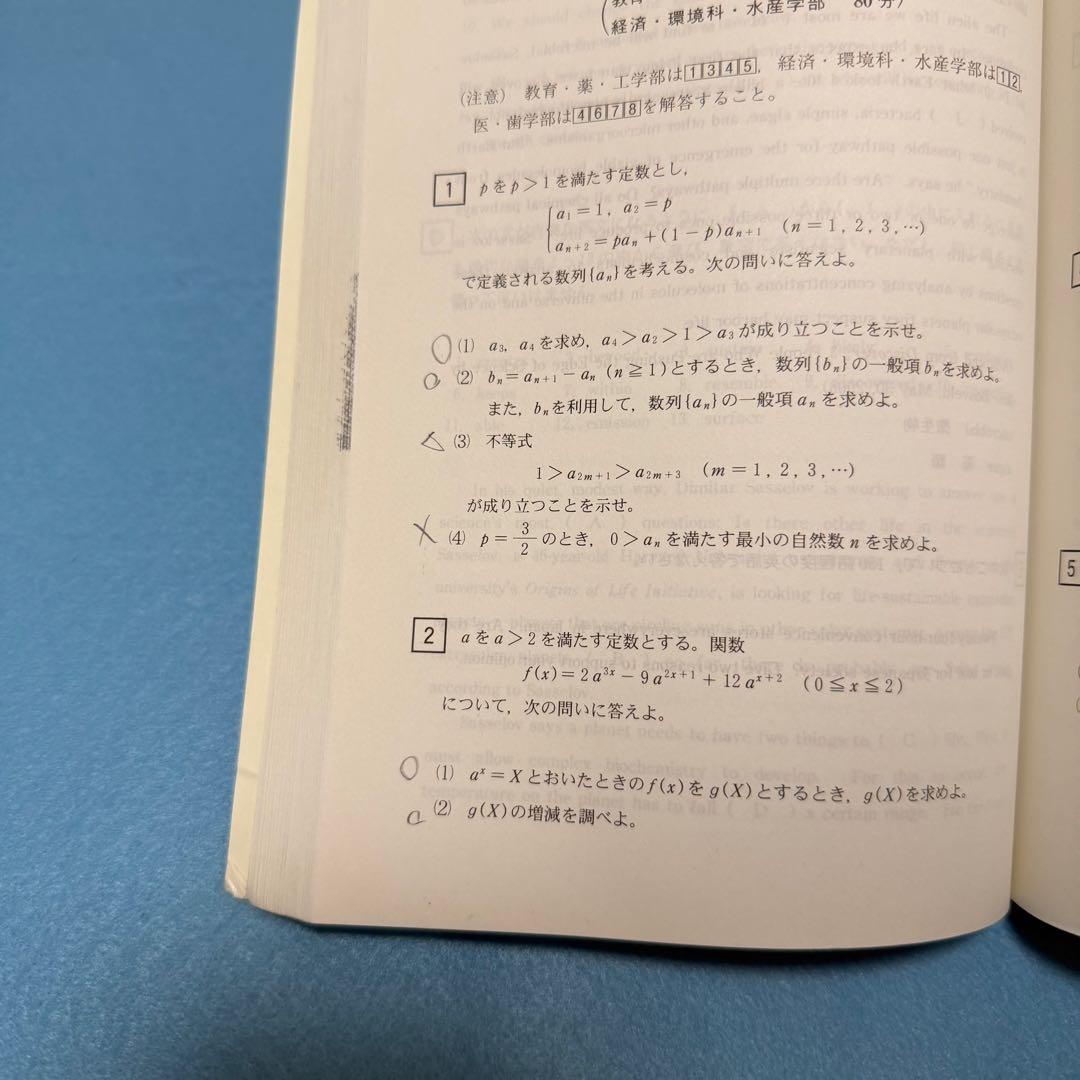 経済・環境科・水産学部 80分
(注意) 教育・薬・工学部は1 3 4 5, 経済・環境科・水産学部は1 2,
医・歯学部は4 6 7 8を解答すること。
1 pをp>1を満たす定数とし,
a₁=1, a₂=p
aₙ₊₂=paₙ+(1-p)aₙ₊₁ (n=1, 2, 3, …)
で定義される数列{aₙ}を考える。次の問いに答えよ。
(1) a₃, a₄を求め, a₄>a₂>1>a₃が成り立つことを示せ。
(2) bₙ=aₙ₊₁-aₙ (n≧1)とするとき, 数列{bₙ}の一般項bₙを求めよ。
また, bₙを利用して, 数列{aₙ}の一般項aₙを求めよ。
(3) 不等式
1>a₂ₘ₊₁>a₂ₘ₊₃ (m=1, 2, 3, …)
が成り立つことを示せ。
(4) p=3/2のとき, 0>aₙを満たす最小の自然数nを求めよ。
2 aをa>2を満たす定数とする。関数
f(x)=2a³ˣ-9a²ˣ⁺¹+12aˣ⁺² (0≦x≦2)
について, 次の問いに答えよ。
(1) aˣ=Xとおいたときのf(x)をg(X)とするとき, g(X)を求めよ。
(2) g(X)の増減を調べよ。
5